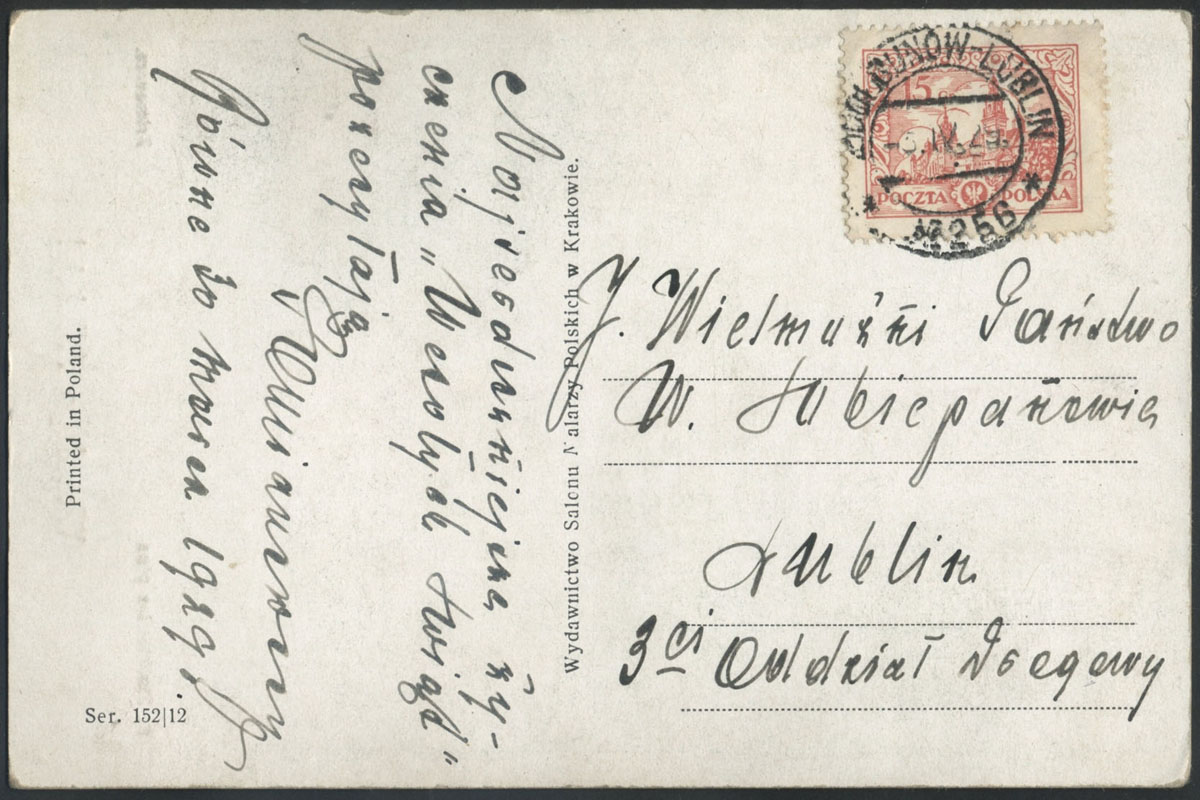 Najserdeczniejsze ży-
czenia „Wesołych Świąt"
przesyłają
Równe 30 marca 1929 r
Wydawnictwo Salonu Malarzy Polskich w Krakowie.
Printed in Poland.
Ser. 152|12
15
POCZTA POLSKA
LUBLIN
256
J. Wielmożni Państwo
W.
Lublin.
3ci Oddział Drogowy